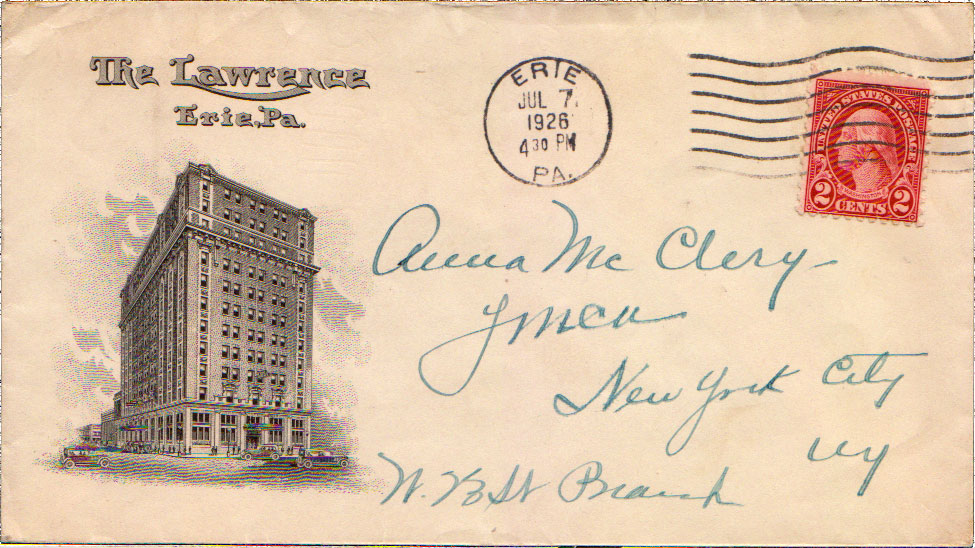 The Lawrence
Erie, Pa.
ERIE
JUL 7.
1926
4 30 PM
PA.
UNITED STATES POSTAGE
WASHINGTON
2 CENTS 2
Anna McClery
YMCA
New York City
NY
W. St Branch